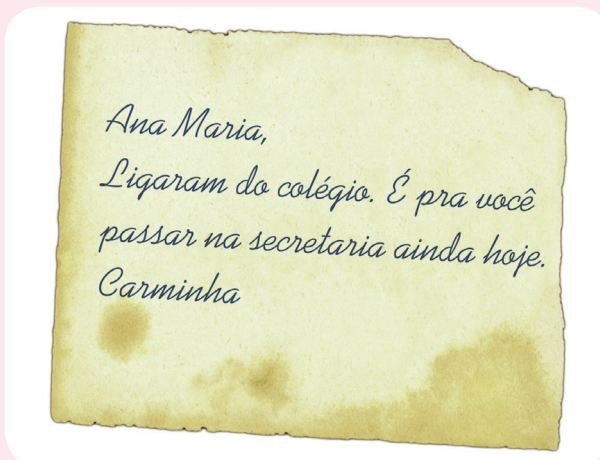 Ana Maria,
Ligaram do colégio. É pra você
passar na secretaria ainda hoje.
Carminha